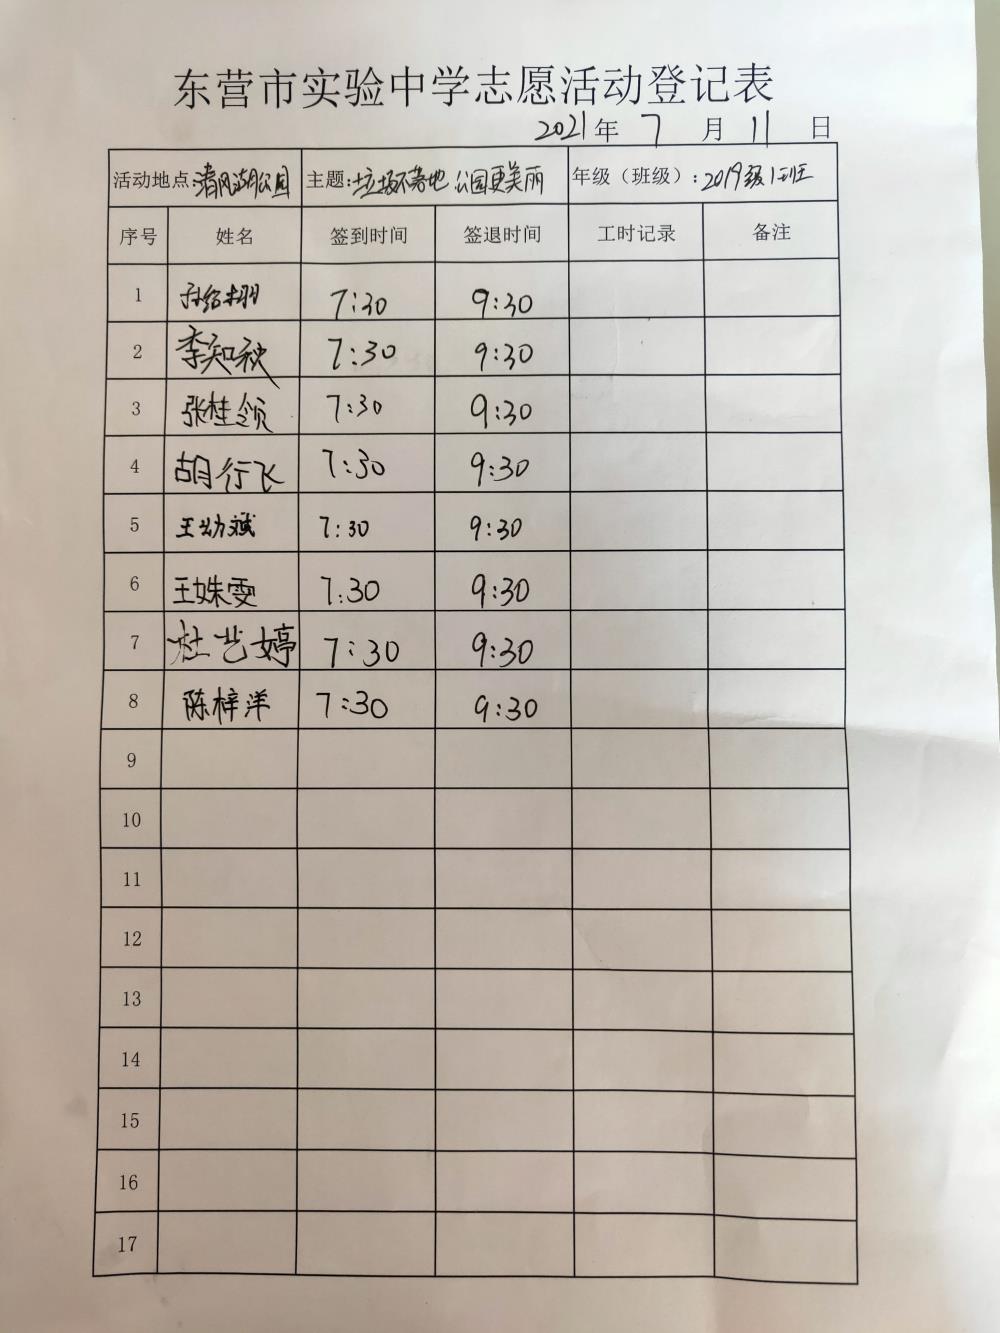 东营市实验中学志愿活动登记表
2021年 7 月 11 日
活动地点:清风湖公园 主题:垃圾不落地 公园更美丽 年级（班级）:2019级1班
序号 姓名 签到时间 签退时间 工时记录 备注
1 孙绍翔 7:30 9:30
2 李知秋 7:30 9:30
3 张桂领 7:30 9:30
4 胡行飞 7:30 9:30
5 王幼斌 7:30 9:30
6 王姝雯 7:30 9:30
7 杜艺婷 7:30 9:30
8 陈梓洋 7:30 9:30
9
10
11
12
13
14
15
16
17